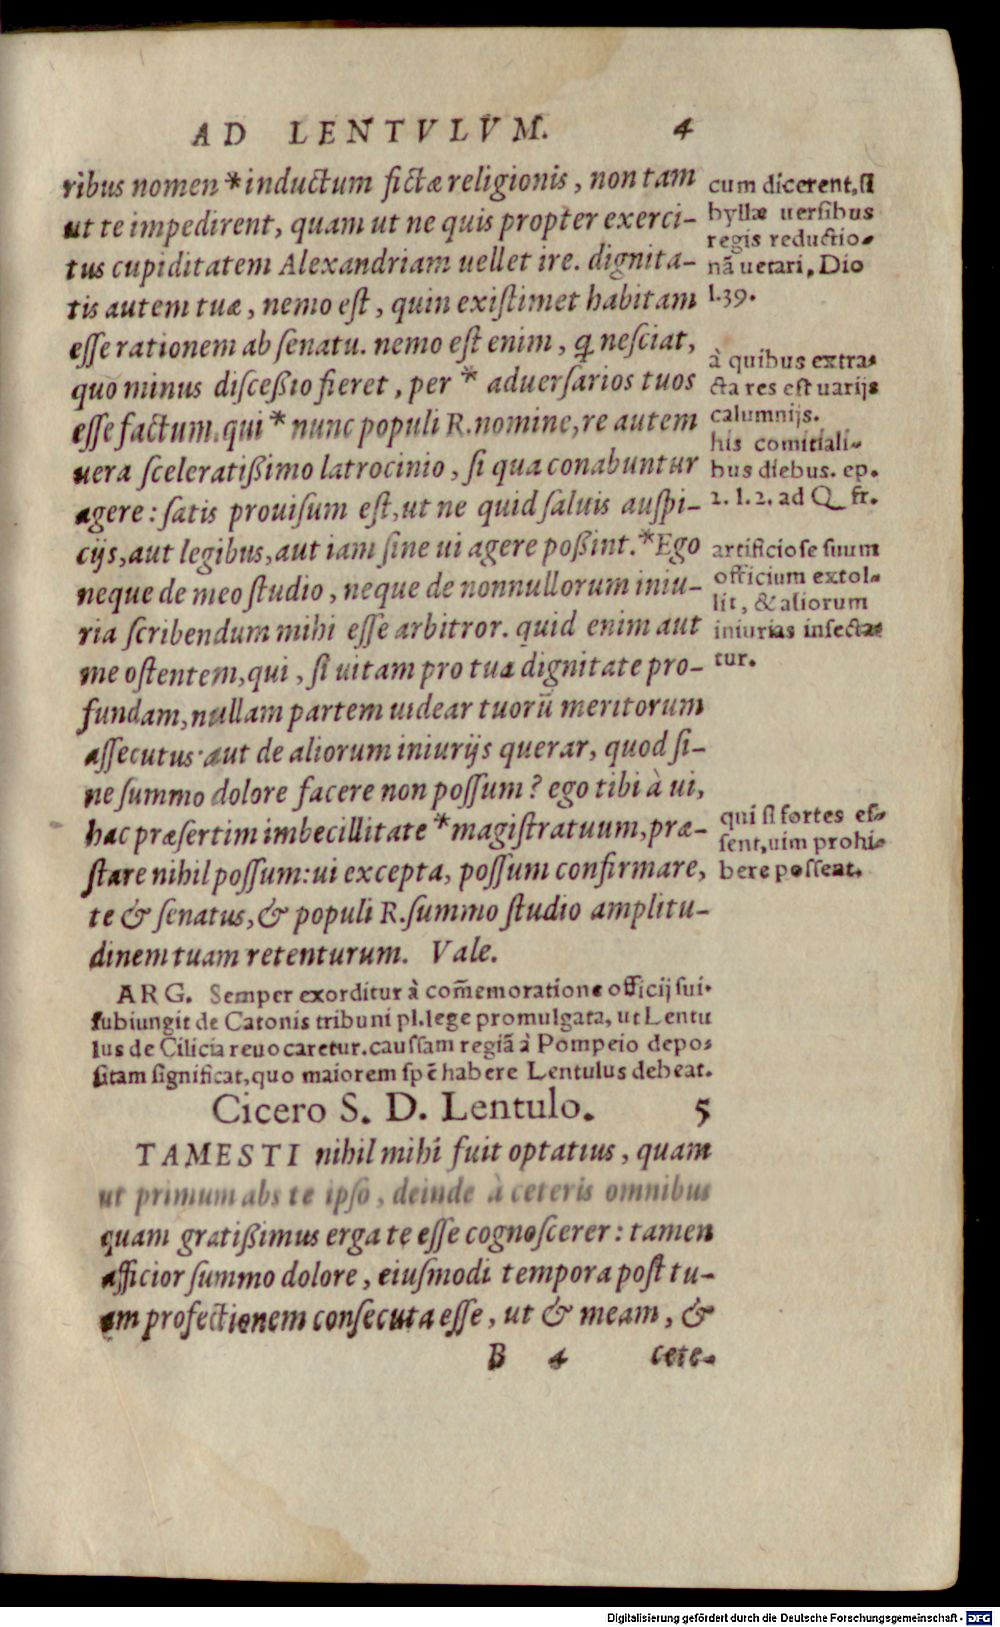 AD LENTVLVM. 4
ribus nomen * inductum fictæ religionis, non tam
ut te impedirent, quam ut ne quis propter exerci-
tus cupiditatem Alexandriam uellet ire. dignita-
tis autem tuæ, nemo est, quin existimet habitam
esse rationem ab senatu. nemo est enim, q nesciat,
quo minus discessio fieret, per * aduersarios tuos
esse factum. qui * nunc populi R. nomine, re autem
uera sceleratißimo latrocinio, si qua conabuntur
agere: satis prouisum est, ut ne quid saluis auspi-
cijs, aut legibus, aut iam sine ui agere poßint. * Ego
neque de meo studio, neque de nonnullorum iniu-
ria scribendum mihi esse arbitror. quid enim aut
me ostentem, qui, si uitam pro tua dignitate pro-
fundam, nullam partem uidear tuorũ meritorum
assecutus· aut de aliorum iniurijs querar, quod si-
ne summo dolore facere non possum? ego tibi à ui,
hac præsertim imbecillitate * magistratuum, præ-
stare nihil possum: ui excepta, possum confirmare,
te & senatus, & populi R. summo studio amplitu-
dinem tuam retenturum. Vale.
cum dicerent, si
byllæ uersibus
regis reductio-
nã uetari, Dio
l.39.
à quibus extra-
cta res est uarijs
calumnijs.
his comitiali-
bus diebus. ep.
2. l. 2. ad Q. fr.
artificiose suum
officium extol-
lit, & aliorum
iniurias insecta-
tur.
qui si fortes es-
sent, uim prohi-
bere posseat.
ARG. Semper exorditur à com̃emoratione officij sui.
subiungit de Catonis tribuni pl. lege promulgata, ut Lentu
lus de Cilicia reuocaretur. caussam regiã à Pompeio depo-
sitam significat, quo maiorem spẽ habere Lentulus debeat.
Cicero S. D. Lentulo. 5
TAMESTI nihil mihi fuit optatius, quam
ut primum abs te ipso, deinde à ceteris omnibus
quam gratißimus erga te esse cognoscerer: tamen
afficior summo dolore, eiusmodi tempora post tu-
am profectionem consecuta esse, ut & meam, &
B 4 cete-
Digitalisierung gefördert durch die Deutsche Forschungsgemeinschaft - DFG